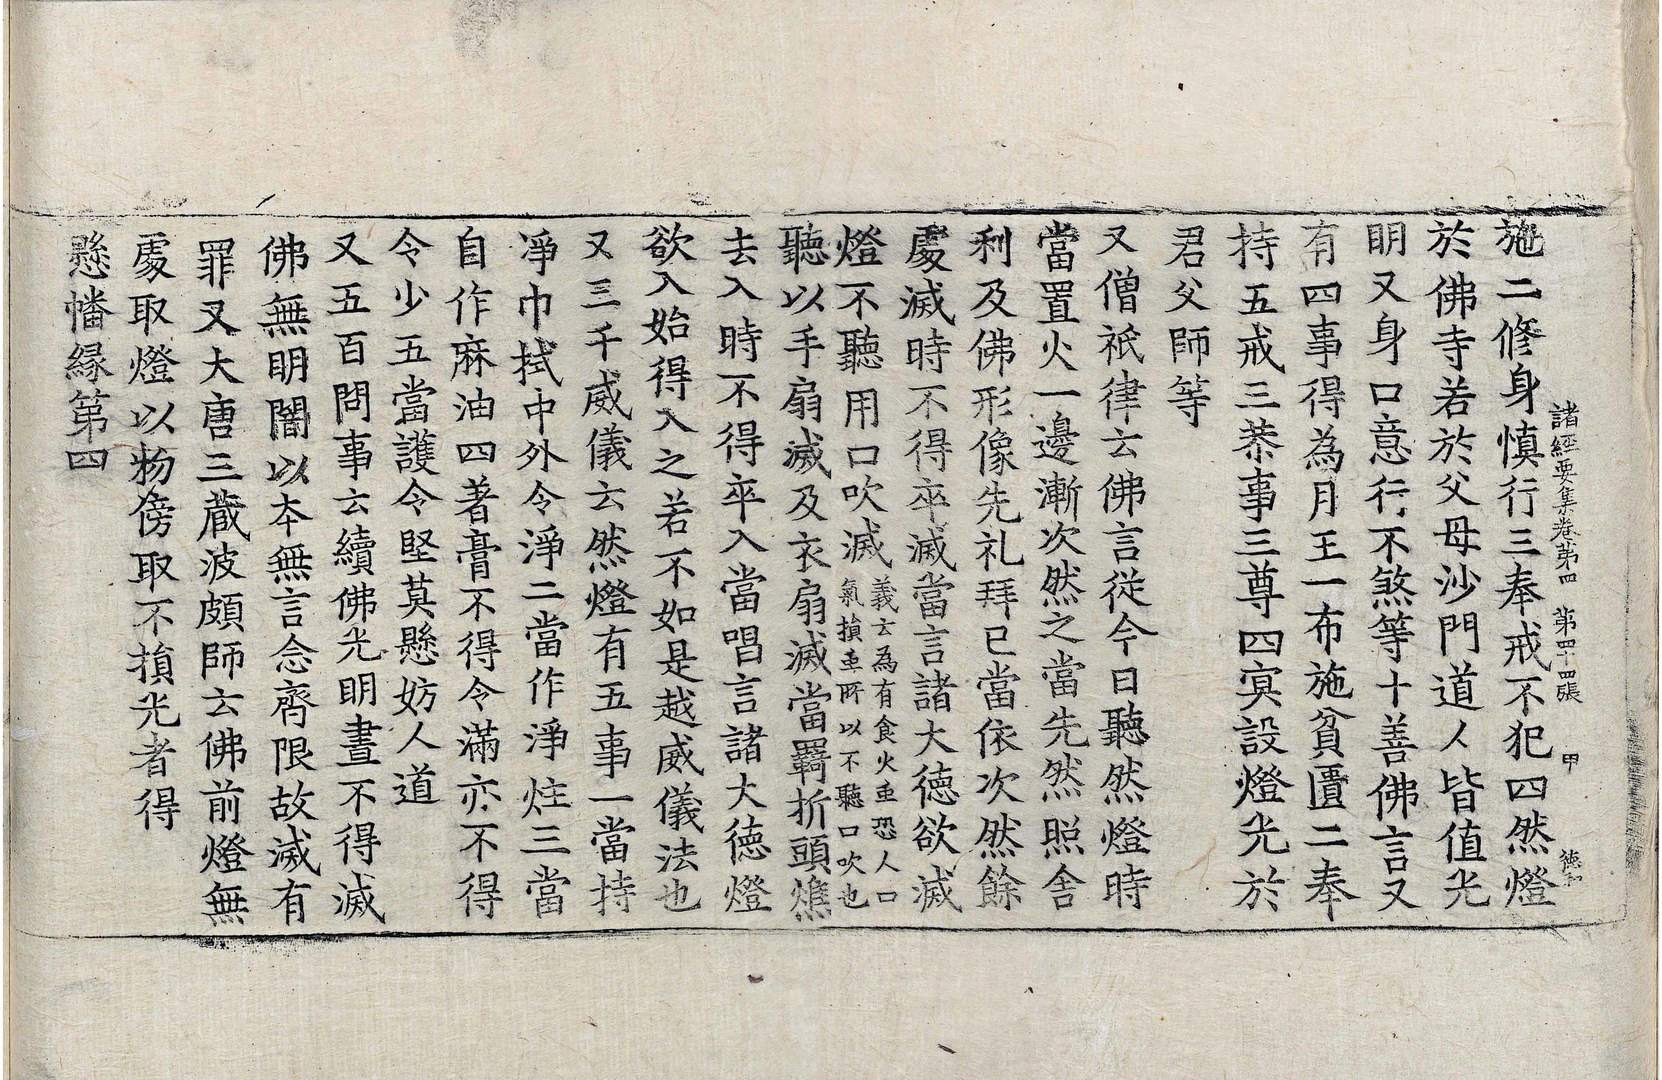 諸經要集卷第四 第四十四張 甲 德和
施二修身慎行三奉戒不犯四然燈
於佛寺若於父母沙門道人皆值光
明又身口意行不煞等十善佛言又
有四事得為月王一布施貧匱二奉
持五戒三恭事三尊四冥設燈光於
君父師等
又僧祇律云佛言從今日聽然燈時
當置火一邊漸次然之當先然照舍
利及佛形像先礼拜已當依次然餘
處滅時不得卒滅當言諸大德欲滅
燈不聽用口吹滅義云為有食火虫恐人口氣損虫所以不聽口吹也
聽以手扇滅及衣扇滅當羇折頭燋
去入時不得卒入當唱言諸大德燈
欲入始得入之若不如是越威儀法也
又三千威儀云然燈有五事一當持
淨巾拭中外令淨二當作淨炷三當
自作麻油四著膏不得令滿亦不得
令少五當護令堅莫懸妨人道
又五百問事云續佛光明晝不得滅
佛無明闇以本無言念齊限故滅有
罪又大唐三藏波頗師云佛前燈無
處取燈以物傍取不損光者得
懸幡緣第四